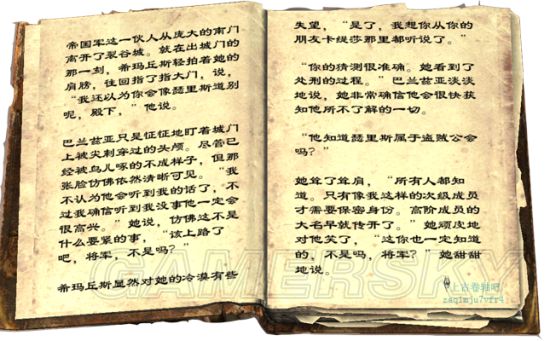 帝国军这一伙人从庞大的南门
离开了裂谷城。就在出城门的
那一刻，希玛丘斯轻拍着她的
肩膀，往回指了指大门，说，
“我还以为你会像瑟里斯道别
呢，殿下，”他说。
巴兰兹亚只是怔怔地盯着城门
上被尖刺穿过的头颅。尽管已
经被鸟儿啄的不成样子，但那
张脸仿佛依然清晰可见。“我
不认为他会听到我的话了，不
过我确信听到我没事他一定会
很高兴。”她说，仿佛这不是
什么要紧的事，“该上路了
吧，将军，不是吗？”
希玛丘斯显然对她的冷漠有些
失望，“是了，我想你从你的
朋友卡缇莎那里都听说了。”
“你的猜测很准确。她看到了
处刑的过程。”巴兰兹亚淡淡
地说，她非常确信他会很快获
知他所不了解的一切。
“他知道瑟里斯属于盗贼公会
吗？”
她耸了耸肩，“所有人都知
道。只有像我这样的次级成员
才需要保密身份。高阶成员的
大名早就传开了。”她顽皮地
对他笑了，“这你也一定知道
的，不是吗，将军？”她甜甜
地说。
GAMERSKY
上古卷轴吧
zaqimju7vfr4